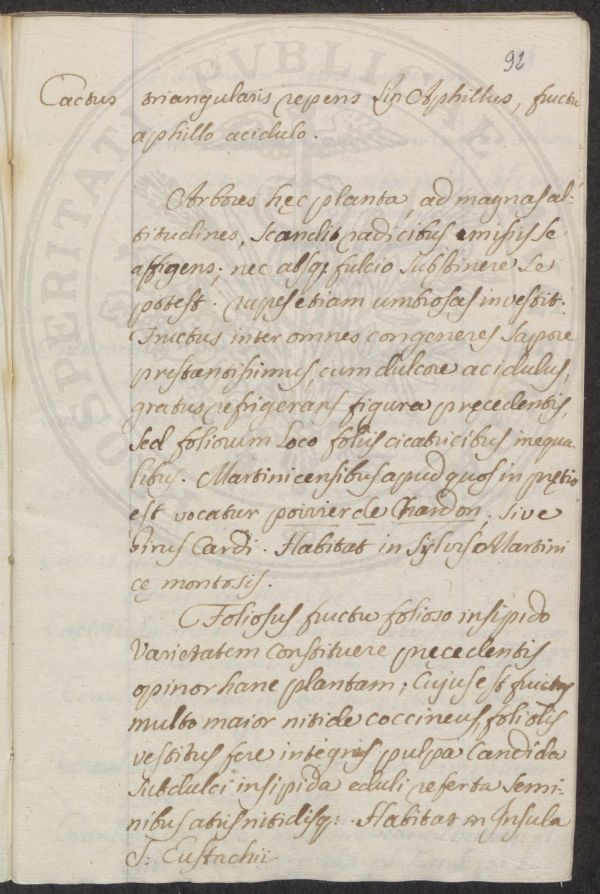 92
Cactus triangularis repens Lin Aphillus, fructu
aphillo acidulo.
Arbores hęc planta, ad magnas al-
titudines, scandit radicibus emisis se
affigens; nec absq; fulcio substinere se
potest. rupes etiam umbrosas investit.
Fructus inter omnes congeneres sapore
prestantissimus, cum dulcore acidulus,
gratus refrigerans figura pręcedentis,
sed foliorum loco foliis cicatricibus inequa-
libus. Martinicensibus apud quos in prętio
est vocatur poirier de Chardon, sive
Pirus Cardi. Habitat in Sylvis Martini
cę montosis.
Foliosus fructu folioso insipido
Varietatem constituere pręcedentis
opinor hanc plantam; Cujus est fructus
multo maior nitide coccineus, foliolis
vestitus fere integris pulpa Candida
subdulci insipida eduli referta Semi-
nibus atris nitidisq; Habitat in Insula
S: Eustachii
PUBLICAE
PROSPERITATI